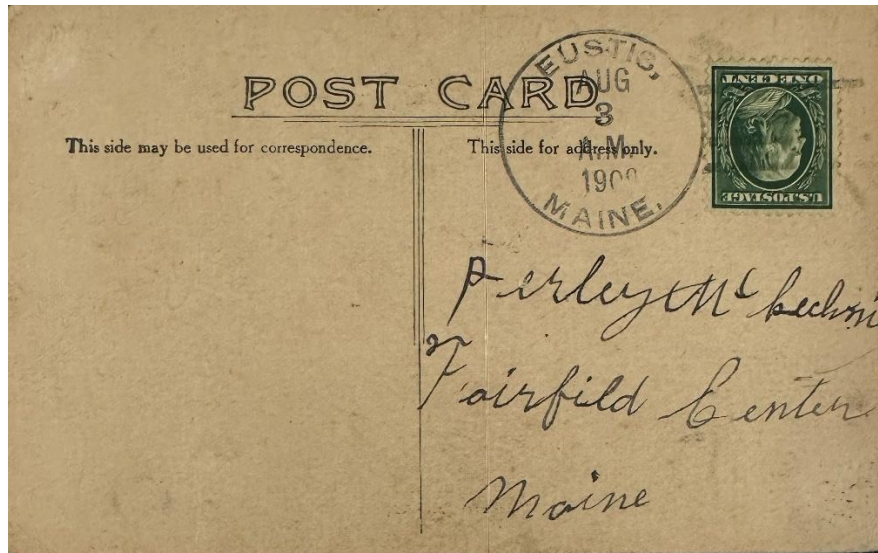 POST CARD
This side may be used for correspondence.
This side for address only.
EUSTIS,
AUG
3
A.M.
MAINE.
ONE CENT
U.S.POSTAGE
Perley
Fairfild Center
Maine